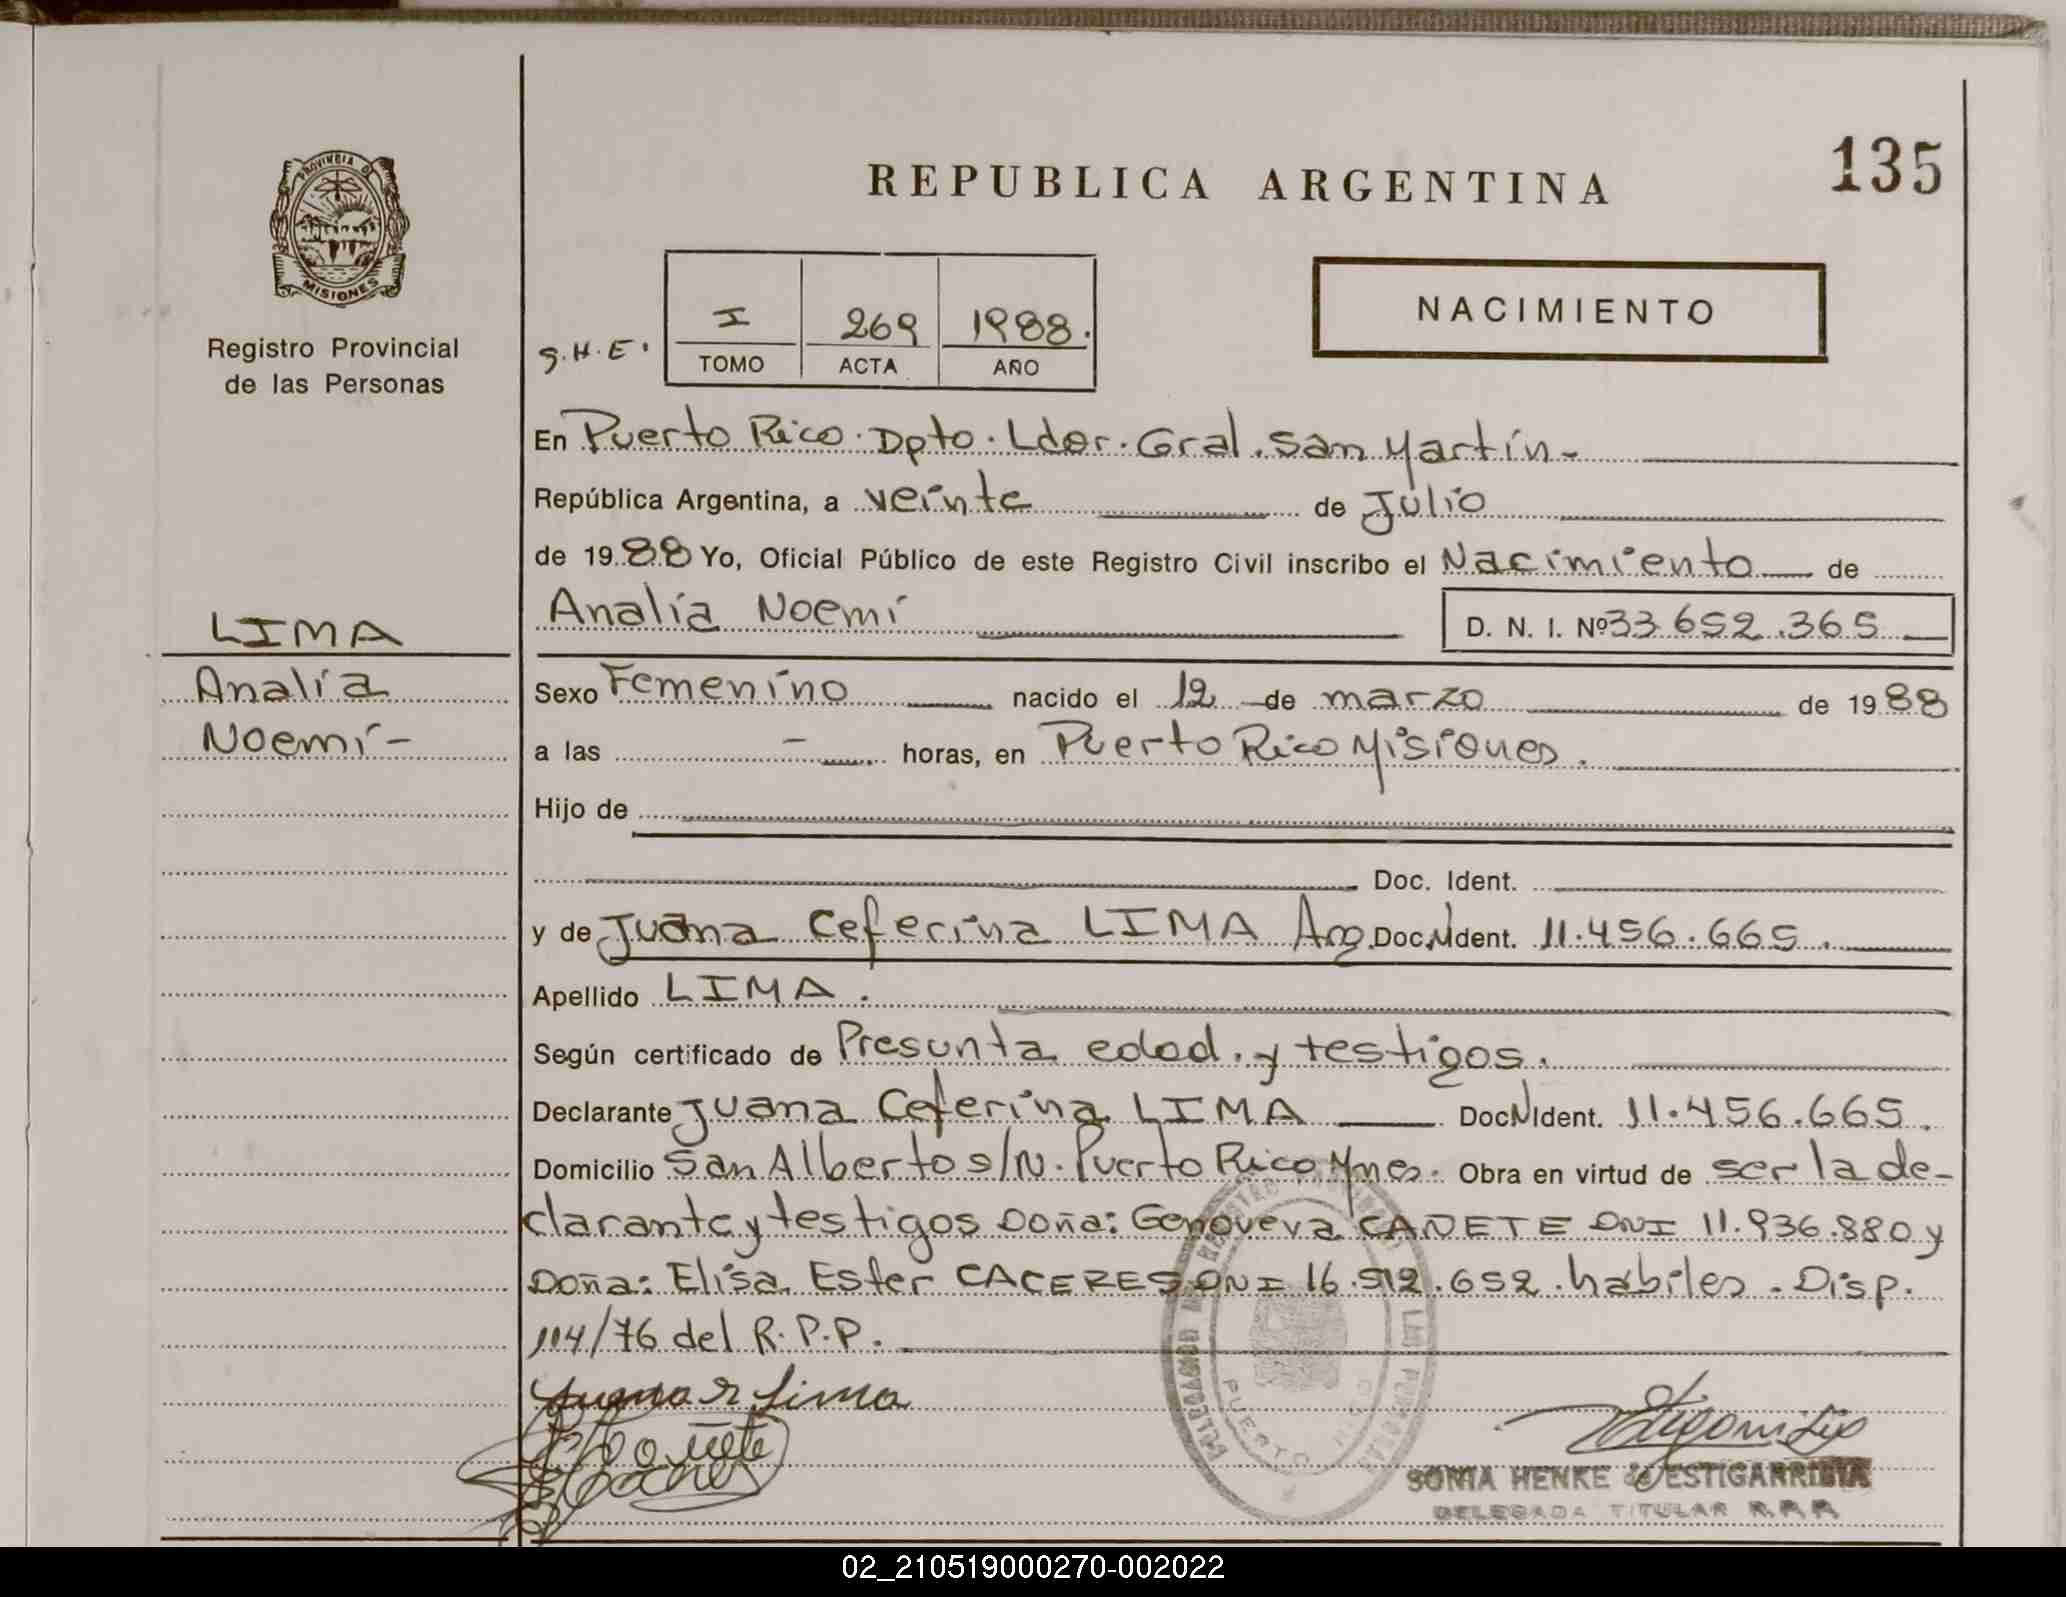 PROVINCIA DE
MISIONES
Registro Provincial
de las Personas
LIMA
Analía
Noemí-
REPUBLICA ARGENTINA
135
S.H.E.
I 269 1988.
TOMO ACTA AÑO
NACIMIENTO
En Puerto Rico. Dpto. Ldor. Gral. San Martín-
República Argentina, a veinte de Julio
de 19 88 Yo, Oficial Público de este Registro Civil inscribo el Nacimiento de
Analía Noemí D. N. I. Nº 33.652.365
Sexo Femenino nacido el 12 de marzo de 19 88
a las - horas, en Puerto Rico Misiones.
Hijo de
Doc. Ident.
y de Juana Ceferina LIMA Arg. Doc.NIdent. 11.456.665.
Apellido LIMA.
Según certificado de Presunta edad. y testigos.
Declarante Juana Ceferina LIMA DocNIdent. 11.456.665.
Domicilio San Alberto s/N. Puerto Rico Mnes. Obra en virtud de ser la de-
clarante y testigos Doña: Genoveva CAÑETE DNI 11.936.880 y
Doña: Elisa Ester CACERES DNI 16.512.652. hábiles. Disp.
114/76 del R.P.P.
Juana R Lima
Cañete
PUERTO RICO
SONIA HENKE de ESTIGARRIBIA
DELEGADA TITULAR R.P.P.
02_210519000270-002022